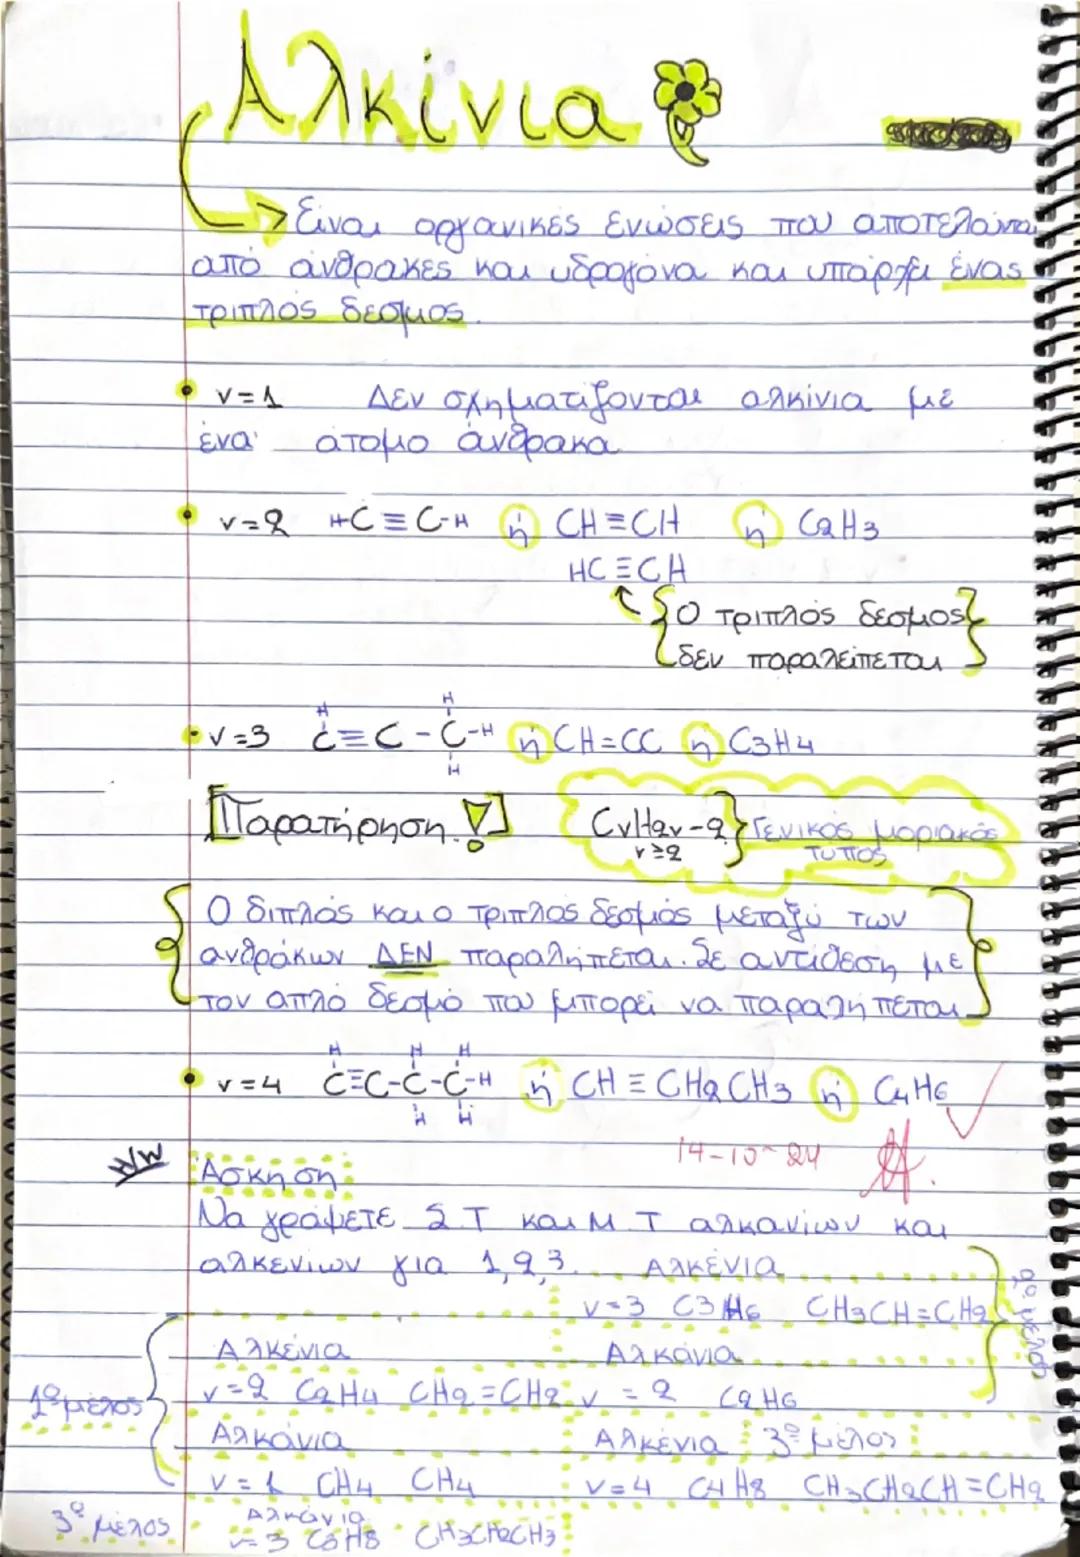 Αλκίνια
Είναι οργανικές ενώσεις που αποτελούνται
από άνθρακες και υδρογόνα και υπάρχει ένας
τριπλός δεσμός.
v=1 Δεν σχηματίζονται αλκίνια με
ένα άτομο άνθρακα
v=2 H-C≡C-H ή CH≡CH ή C2H3
HC≡CH
{Ο τριπλός δεσμός
δεν παραλείπεται}
H
H
v=3 C≡C-C-H ή CH=CC ή C3H4
H
[Παρατήρηση!] CvH2v-2} Γενικός μοριακός
v≥2 τύπος
{Ο διπλός και ο τριπλός δεσμός μεταξύ των
ανθράκων ΔΕΝ παραλήπεται. Σε αντίθεση με
τον απλό δεσμό που μπορεί να παραλήπεται}
H H H
v=4 C≡C-C-C-H ή CH≡CH2CH3 ή C4H6
H H
14-10-24
H/W Άσκηση:
Να γράψετε Σ.Τ και Μ.Τ αλκανίων και
αλκενίων για 1,2,3. Αλκένια
v=3 C3H6 CH3CH=CH2 2º μέλος
Αλκένια Αλκάνια
1º μέλος v=2 C2H4 CH2=CH2 v=2 C2H6
Αλκάνια Αλκένια 3º μέλος
v=1 CH4 CH4 v=4 C4H8 CH3CH2CH=CH2
Αλκάνια
3º μέλος v=3 C3H8 CH3CH2CH3